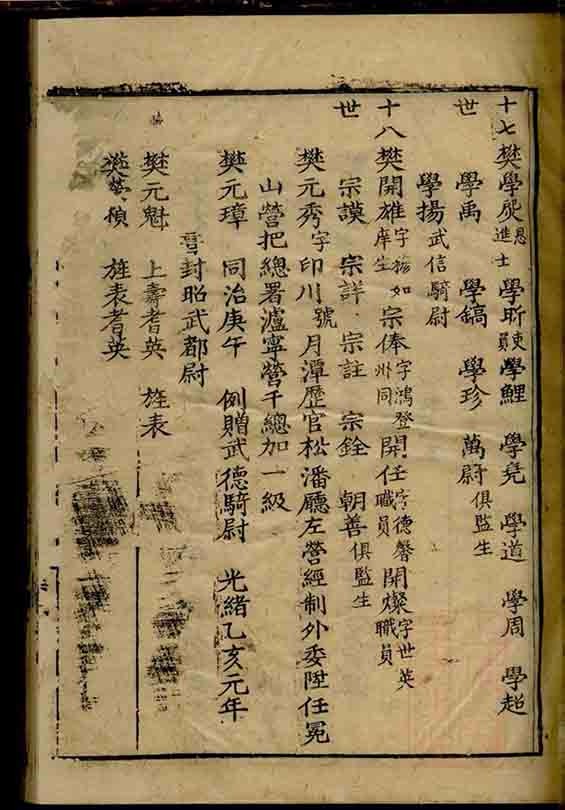 十七世 樊學 恩進士 學昕吏員 學鯉 學堯 學道 學周 學超
學禹 學鎬 學珍 萬尉俱監生
學揚武信騎尉
十八世 樊開雄字揚如庠生 宗俸字鴻登州同 開任字德馨職員 開燦字世英職員
宗謨 宗詳 宗註 宗銓 朝善俱監生
樊元秀字印川號月潭歷官松潘廳左營經制外委陞任冕
山營把總署瀘寧營千總加一級
樊元璋 同治庚午 例贈武德騎尉 光緒乙亥元年
晉封昭武都尉
樊元魁 上壽耆英 旌表
樊英楨 旌表耆英